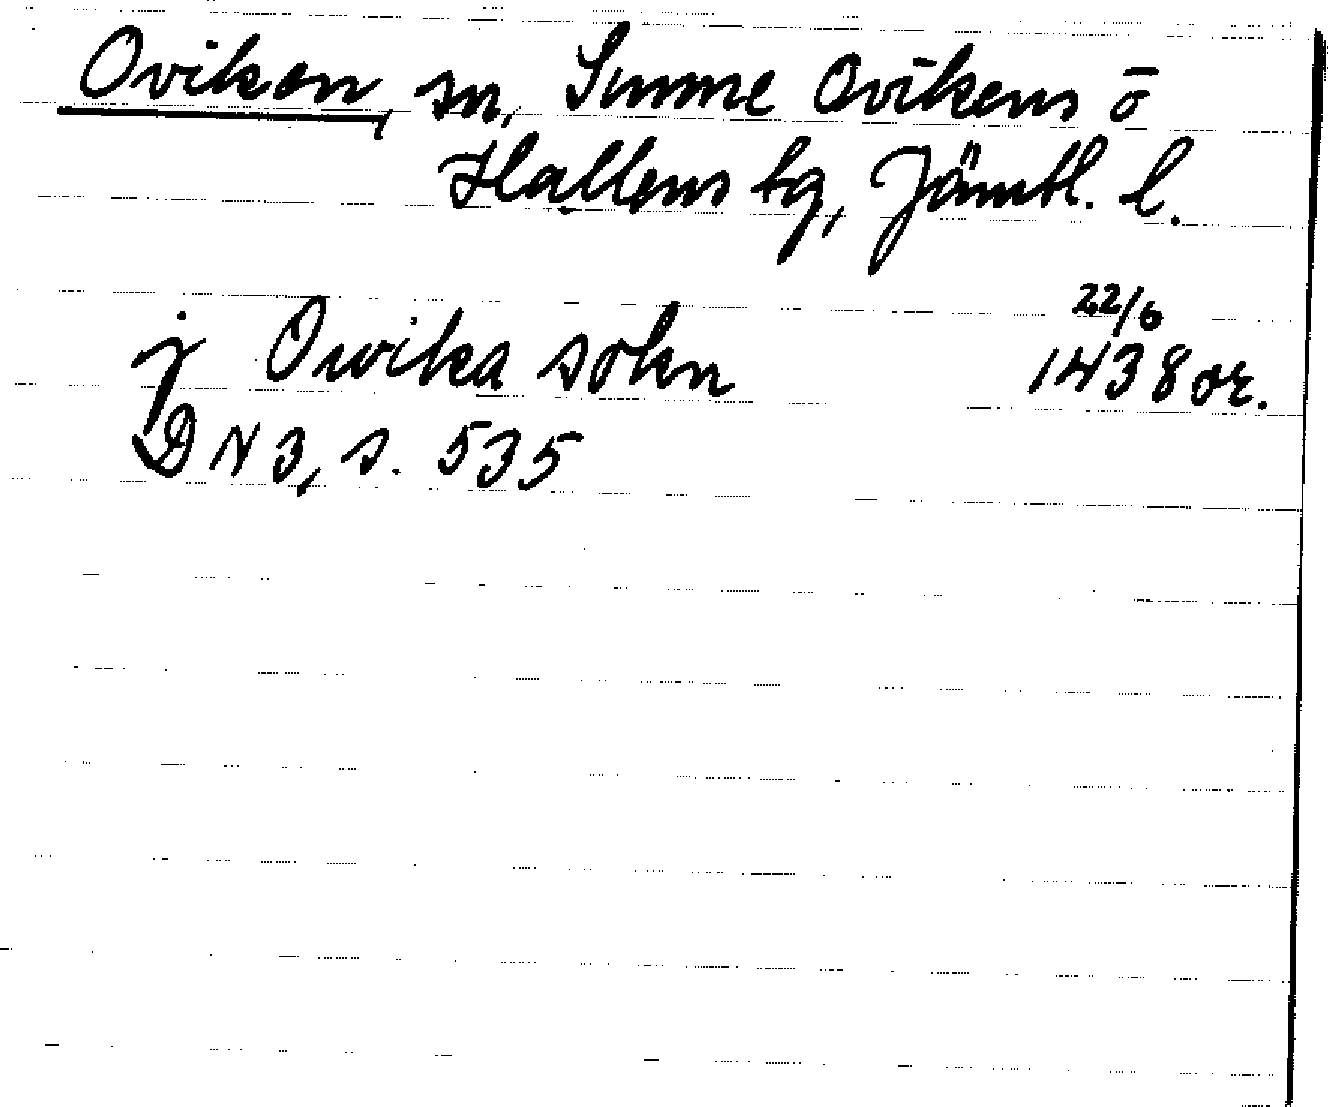 Oviken, sn, Sunne Ovikens o
Hallens tg, Jämtl. l.
j Owika sokn 22/6 1438 or.
DN 3, s. 535